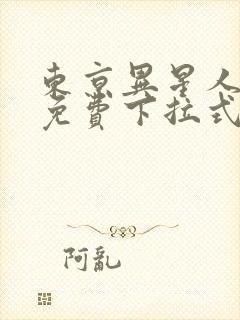 東京異星人
免費下拉式
阿亂